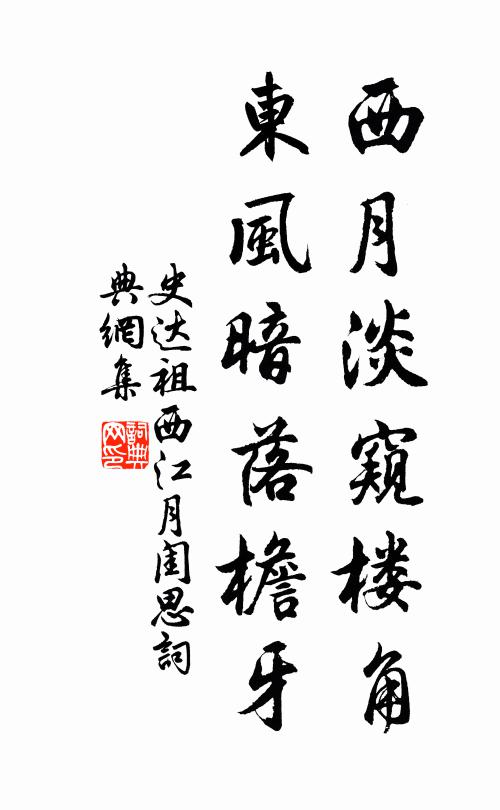 西月淡窺楼角
東風暗落檐牙
史达祖西江月闺思詞
典網集
詞典网印